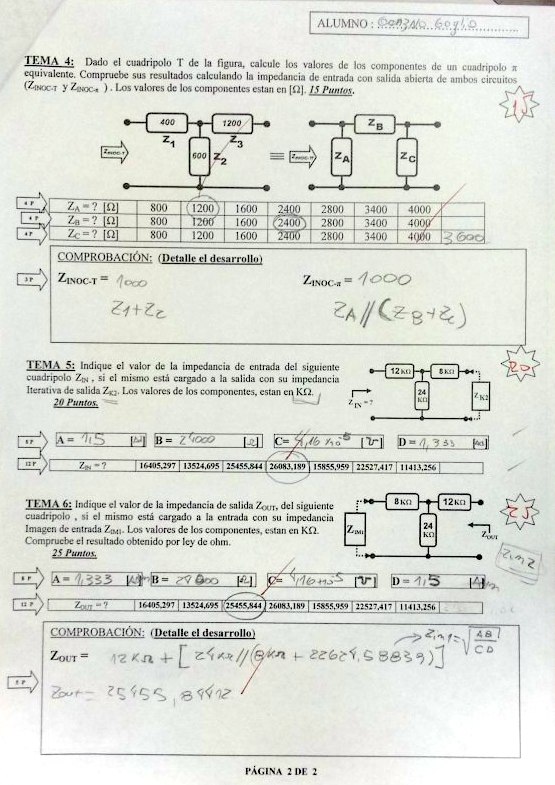 ALUMNO : Gonzalo Goglio
TEMA 4: Dado el cuadripolo T de la figura, calcule los valores de los componentes de un cuadripolo π
equivalente. Compruebe sus resultados calculando la impedancia de entrada con salida abierta de ambos circuitos
(ZINOC-T y ZINOC-π ) . Los valores de los componentes estan en [Ω]. 15 Puntos.
15
400 1200 ZB
Z1 Z3
ZINOC-T 600 Z2 ≡ ZINOC-π ZA ZC
4 P ZA = ? [Ω] 800 1200 1600 2400 2800 3400 4000
4 P ZB = ? [Ω] 800 1200 1600 2400 2800 3400 4000
4 P ZC = ? [Ω] 800 1200 1600 2400 2800 3400 4000 3600
COMPROBACIÓN: (Detalle el desarrollo)
3 P ZINOC-T = 1000 ZINOC-π = 1000
Z1+Z2 ZA//(ZB+Zc)
TEMA 5: Indique el valor de la impedancia de entrada del siguiente
cuadripolo ZIN , si el mismo está cargado a la salida con su impedancia
Iterativa de salida ZK2. Los valores de los componentes, estan en KΩ.
20 Puntos.
12KΩ 8KΩ
24 KΩ ZK2
ZIN =?
20
8 P A = 1,5 B = 24000 [Ω] C= 4,16x10^-5 [℧] D = 1,333
12 P ZIN = ? 16405,297 13524,695 25455,844 26083,189 15855,959 22527,417 11413,256
TEMA 6: Indique el valor de la impedancia de salida ZOUT, del siguiente
cuadripolo , si el mismo está cargado a la entrada con su impedancia
Imagen de entrada ZIM1. Los valores de los componentes, estan en KΩ.
Compruebe el resultado obtenido por ley de ohm.
25 Puntos.
8KΩ 12KΩ
ZIM1 24 KΩ
ZOUT
25
Zim2
8 P A = 1,333 B = 24000 [Ω] C= 4,16x10^-5 [℧] D = 1,5
12 P ZOUT = ? 16405,297 13524,695 25455,844 26083,189 15855,959 22527,417 11413,256
COMPROBACIÓN: (Detalle el desarrollo)
Zim1=√AB/CD
ZOUT = 12KΩ + [24KΩ//(8KΩ + 22627,58839)]
5 P Zout = 25455,84412
PÁGINA 2 DE 2